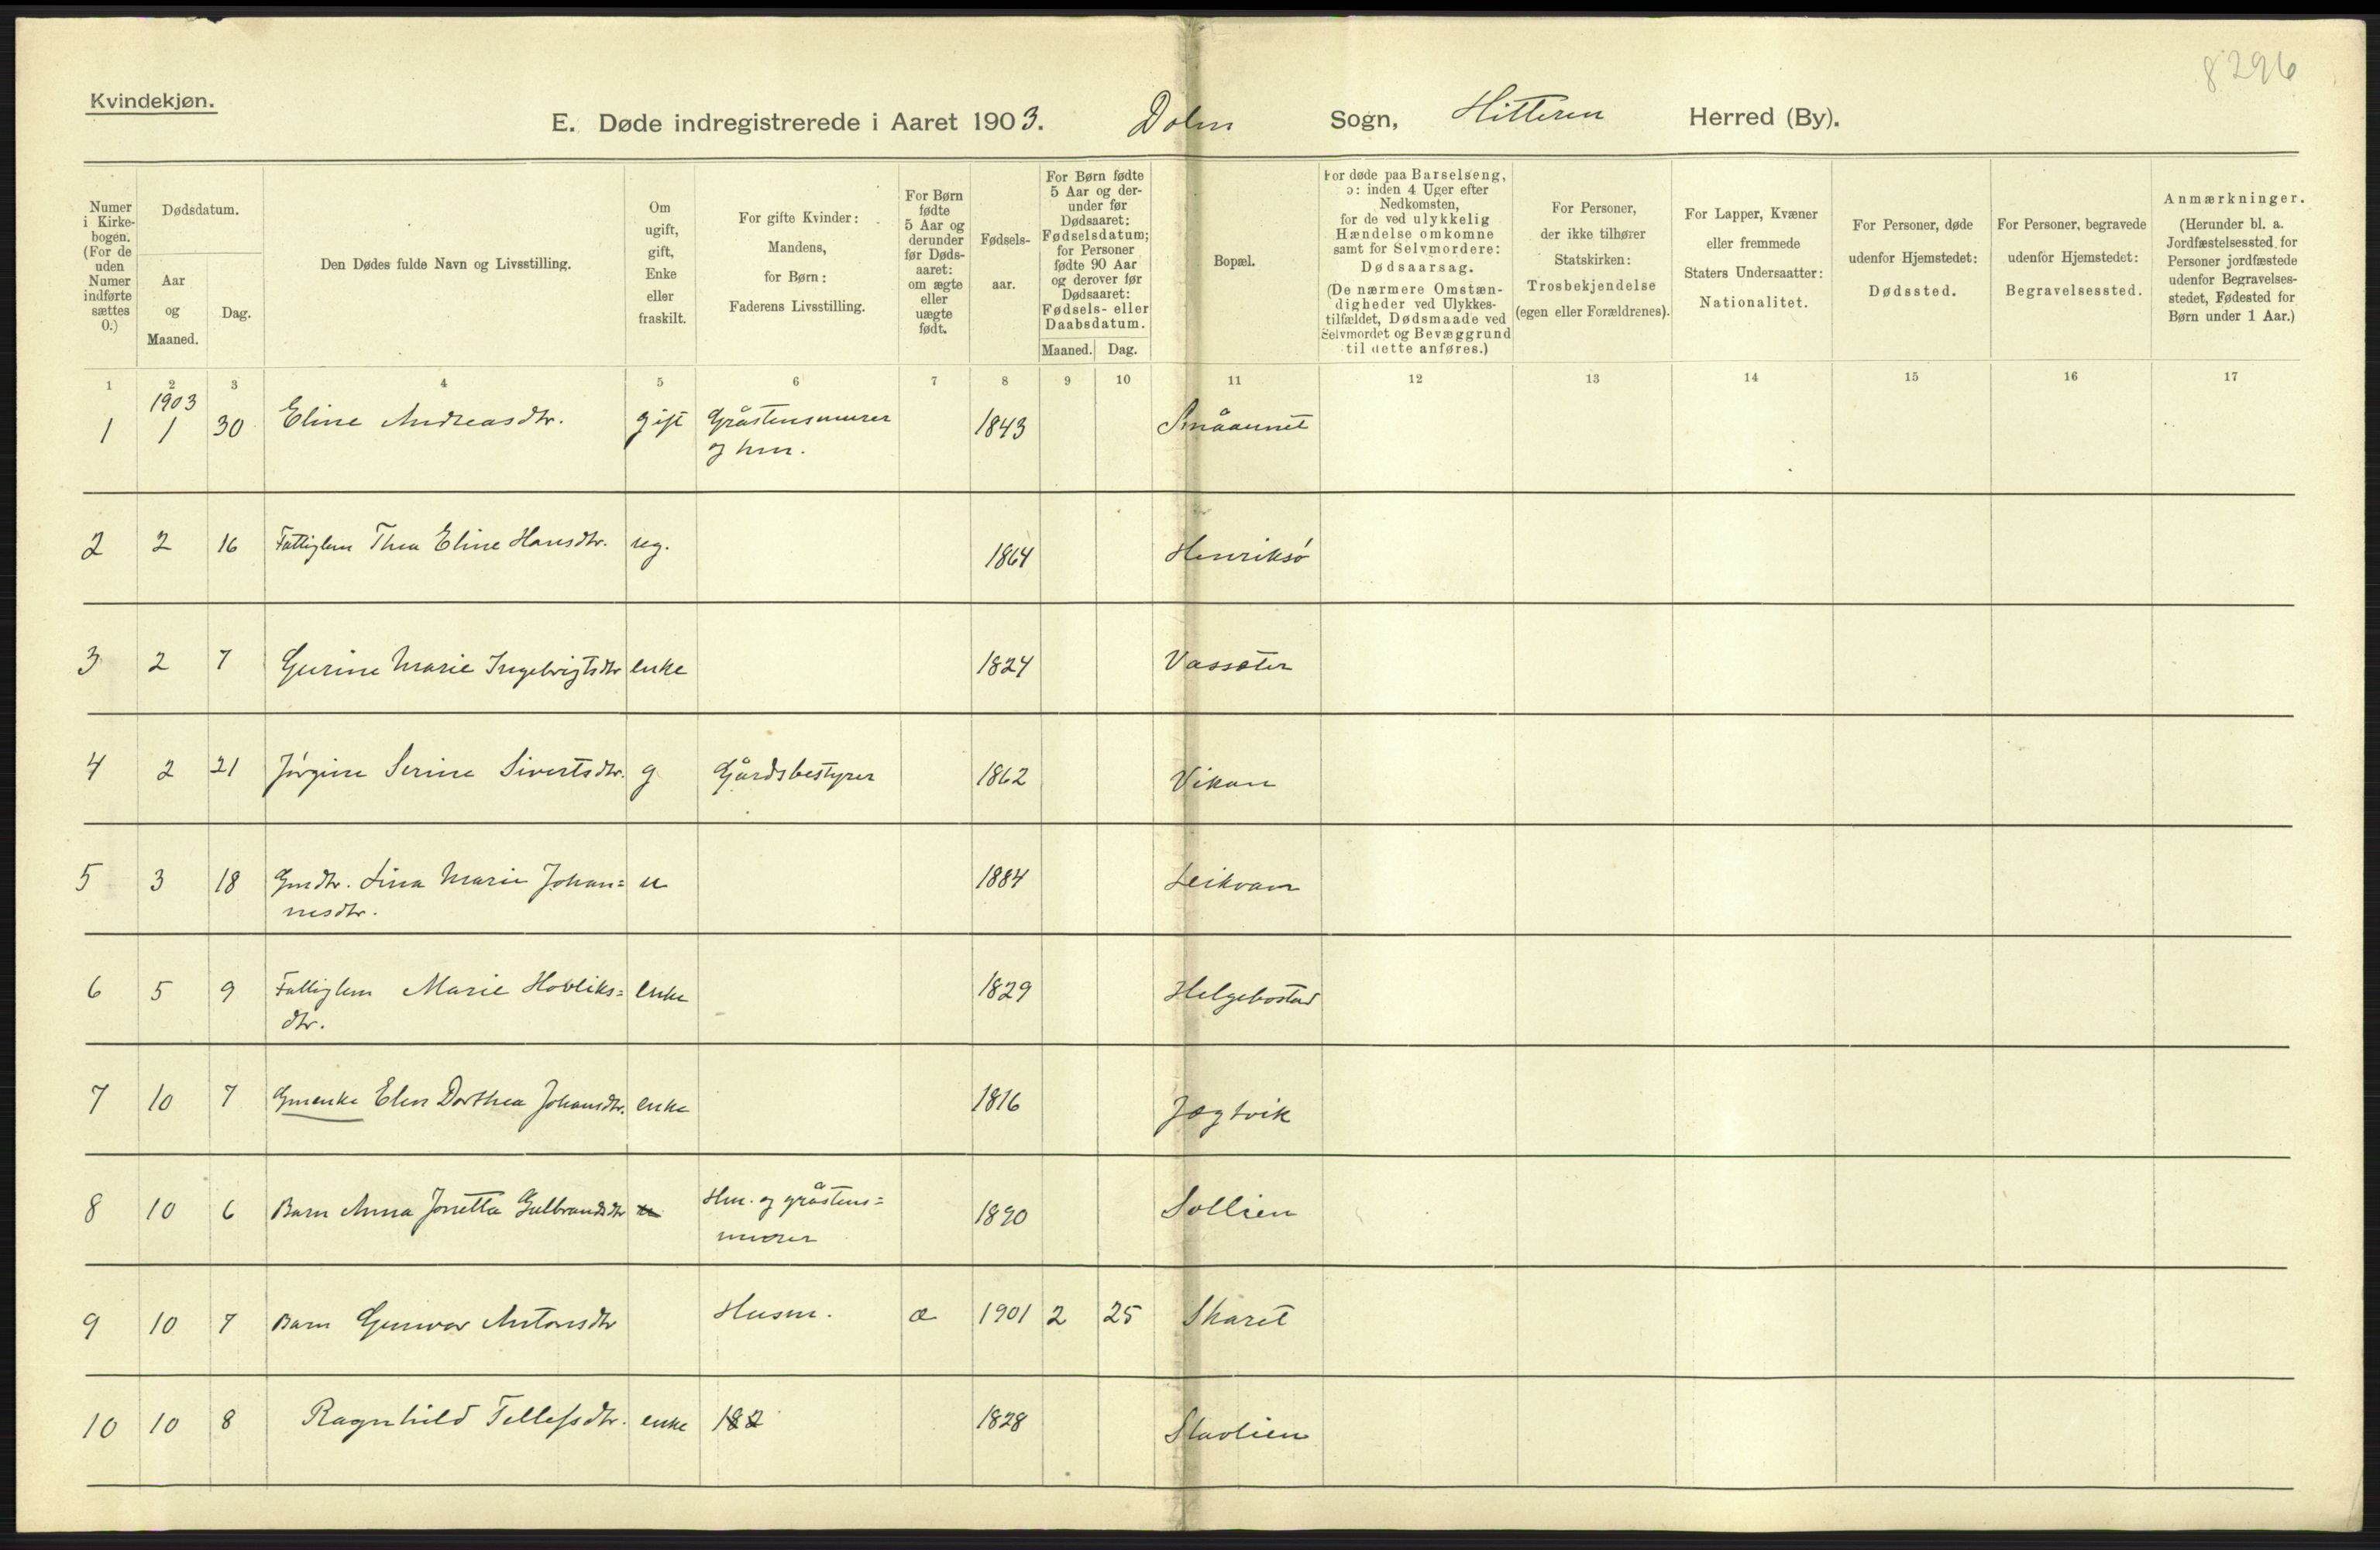 8296
Kvindekjøn.
E. Døde indregistrerede i Aaret 1903. Dolm Sogn, Hitteren Herred (By).
Numer i Kirke-bogen. (For de uden Numer indførte sættes 0.)
Dødsdatum.
Aar og Maaned.
Dag.
Den Dødes fulde Navn og Livsstilling.
Om ugift, gift, Enke eller fraskilt.
For gifte Kvinder: Mandens, for Børn: Faderens Livsstilling.
For Børn fødte 5 Aar og derunder før Døds-aaret: om ægte eller uægte født.
Fødsels-aar.
For Børn fødte 5 Aar og der-under før Dødsaaret: Fødselsdatum; for Personer fødte 90 Aar og derover før Dødsaaret: Fødsels- eller Daabsdatum.
Maaned. Dag.
Bopæl.
For døde paa Barselseng, ɔ: inden 4 Uger efter Nedkomsten, for de ved ulykkelig Hændelse omkomne samt for Selvmordere: Dødsaarsag. (De nærmere Omstæn-digheder ved Ulykkes-tilfældet, Dødsmaade ved Selvmordet og Bevæggrund til dette anføres.)
For Personer, der ikke tilhører Statskirken: Trosbekjendelse (egen eller Forældrenes).
For Lapper, Kvæner eller fremmede Staters Undersaatter: Nationalitet.
For Personer, døde udenfor Hjemstedet: Dødssted.
For Personer, begravede udenfor Hjemstedet: Begravelsessted.
Anmærkninger. (Herunder bl. a. Jordfæstelsessted for Personer jordfæstede udenfor Begravelses-stedet, Fødested for Børn under 1 Aar.)
1 2 3 4 5 6 7 8 9 10 11 12 13 14 15 16 17
1903
1 1 30 Eline Andreasdtr. gift Gråstensmurer 1843 Småaunet
og hm.
2 2 16 Fattiglem Thea Eline Hansdtr. ug. 1864 Henriksø
3 2 7 Gurine Marie Ingebrigtsdtr enke 1824 Vassæter
4 2 21 Jørgine Serine Sivertsdtr. g Gårdsbestyrer 1862 Vikan
5 3 18 Gmdtr. Lina Marie Johan= u 1884 Leikvam
nesdtr.
6 5 9 Fattiglem Marie Hovliks= Enke 1829 Helgebostad
dtr.
7 10 7 Gmenke Elen Dorthea Johansdtr. enke 1816 Jægtvik
8 10 6 Barn Anna Jonetta Gulbrandsdtr u Hm. og gråstens= 1890 Sollien
murer
9 10 7 Barn Gunvor Antonsdtr Husm. æ 1901 2 25 Skaret
10 10 8 Ragnhild Tellefsdtr. enke 182 1828 Stavlien